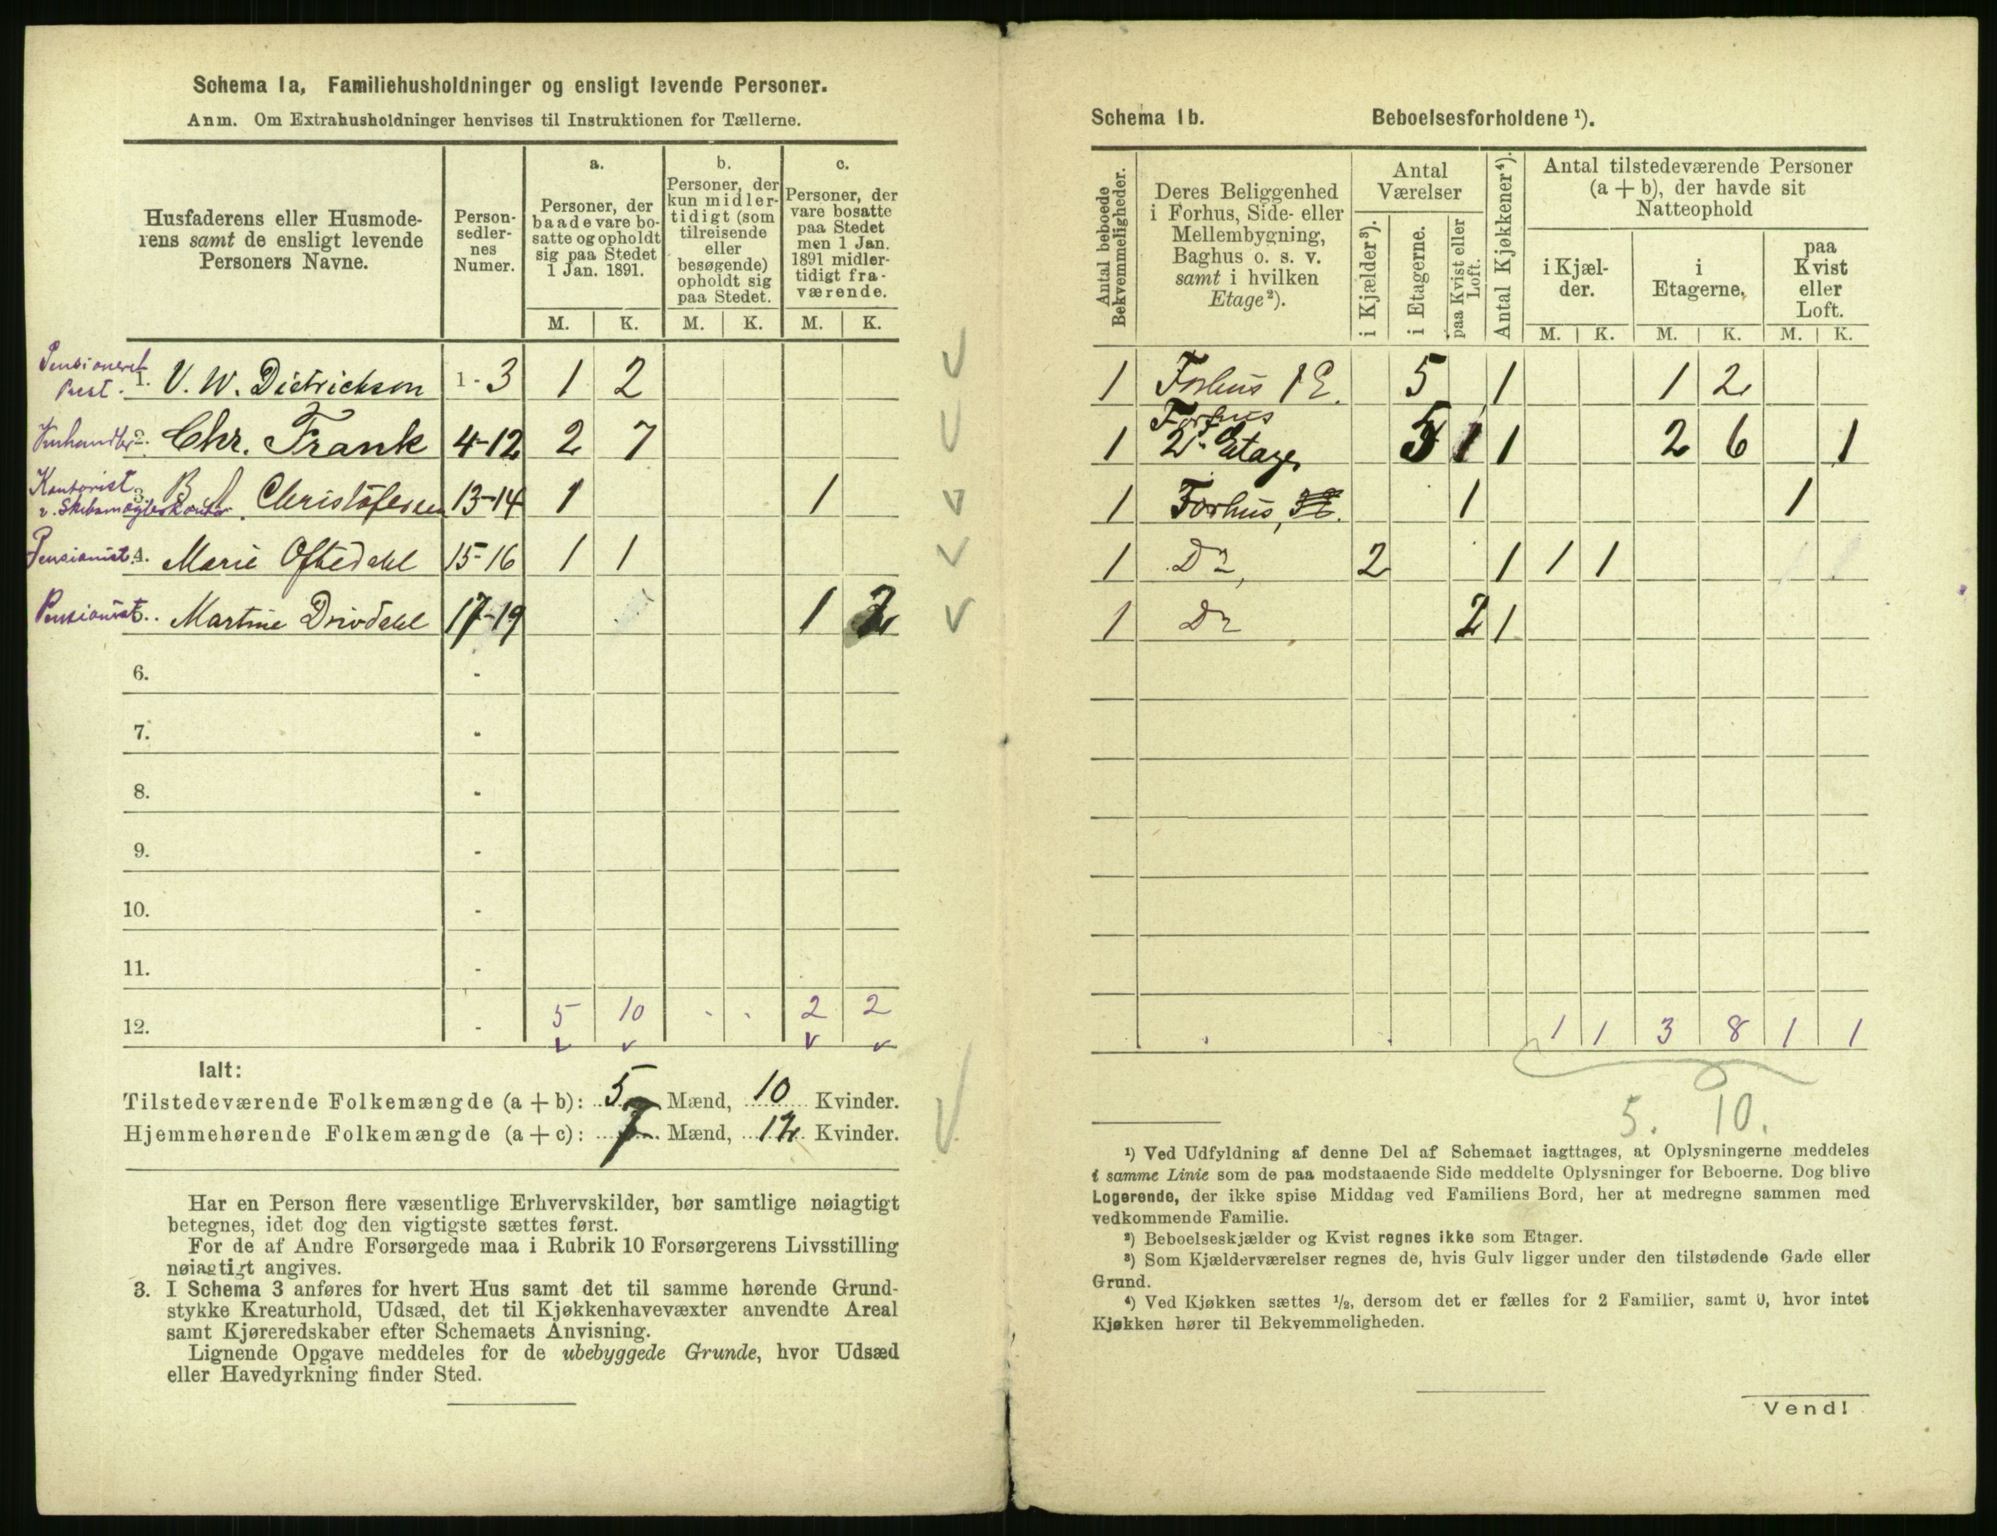 Schema 1a, Familiehusholdninger og ensligt levende Personer.
Anm. Om Extrahusholdninger henvises til Instruktionen for Tællerne.
Husfaderens eller Husmode-
rens samt de ensligt levende
Personers Navne.
Person-
sedler-
nes
Numer.
a.
Personer, der
baade vare bo-
satte og opholdt
sig paa Stedet
1 Jan. 1891.
b.
Personer, der
kun midler-
tidigt (som
tilreisende
eller
besøgende)
opholdt sig
paa Stedet.
c.
Personer, der
vare bosatte
paa Stedet
men 1 Jan.
1891 midler-
tidigt fra-
værende.
M. K. M. K. M. K.
Pensioneret
Prest. 1. V. W. Dietrichson 1-3 1 2
Vinhandler 2. Chr. Frank 4-12 2 7
Kontorist
3. B Christofersen 13-14 1 1
Pensionist 4. Marie Oftedahl 15-16 1 1
Pensionist Martine Drivdahl 17-19 1 2
6. -
7. -
8. -
9. -
10. -
11. -
12. - 5 10 . . 2 2
Ialt:
Tilstedeværende Folkemængde (a + b): 5 Mænd, 10 Kvinder.
Hjemmehørende Folkemængde (a + c): 7 Mænd, 12 Kvinder.
Har en Person flere væsentlige Erhvervskilder, bør samtlige nøiagtigt
betegnes, idet dog den vigtigste sættes først.
For de af Andre Forsørgede maa i Rubrik 10 Forsørgerens Livsstilling
nøiagtigt angives.
3. I Schema 3 anføres for hvert Hus samt det til samme hørende Grund-
stykke Kreaturhold, Udsæd, det til Kjøkkenhavevæxter anvendte Areal
samt Kjøreredskaber efter Schemaets Anvisning.
Lignende Opgave meddeles for de ubebyggede Grunde, hvor Udsæd
eller Havedyrkning finder Sted.
Schema 1b. Beboelsesforholdene ¹).
Antal beboede
Bekvemmeligheder.
Deres Beliggenhed
i Forhus, Side- eller
Mellembygning,
Baghus o. s. v.
samt i hvilken
Etage²).
Antal
Værelser
i Kjælder³).
i Etagerne.
paa Kvist eller
Loft.
Antal Kjøkkener⁴).
Antal tilstedeværende Personer
(a + b), der havde sit
Natteophold
i Kjæl-
der.
i
Etagerne,
paa
Kvist
eller
Loft.
M. K. M. K. M. K.
1 Forhus 1 E. 5 1 1 2
Forhus
1 2. Etage 5 1 1 2 6 1
1 Forhus, 1 1
1 Do, 2 1 1 1
1 Do 2 1
1 1 3 8 1 1
5. 10.
¹) Ved Udfyldning af denne Del af Schemaet iagttages, at Oplysningerne meddeles
i samme Linie som de paa modstaaende Side meddelte Oplysninger for Beboerne. Dog blive
Logerende, der ikke spise Middag ved Familiens Bord, her at medregne sammen med
vedkommende Familie.
²) Beboelseskjælder og Kvist regnes ikke som Etager.
³) Som Kjælderværelser regnes de, hvis Gulv ligger under den tilstødende Gade eller
Grund.
⁴) Ved Kjøkken sættes ½, dersom det er fælles for 2 Familier, samt 0, hvor intet
Kjøkken hører til Bekvemmeligheden.
Vend!